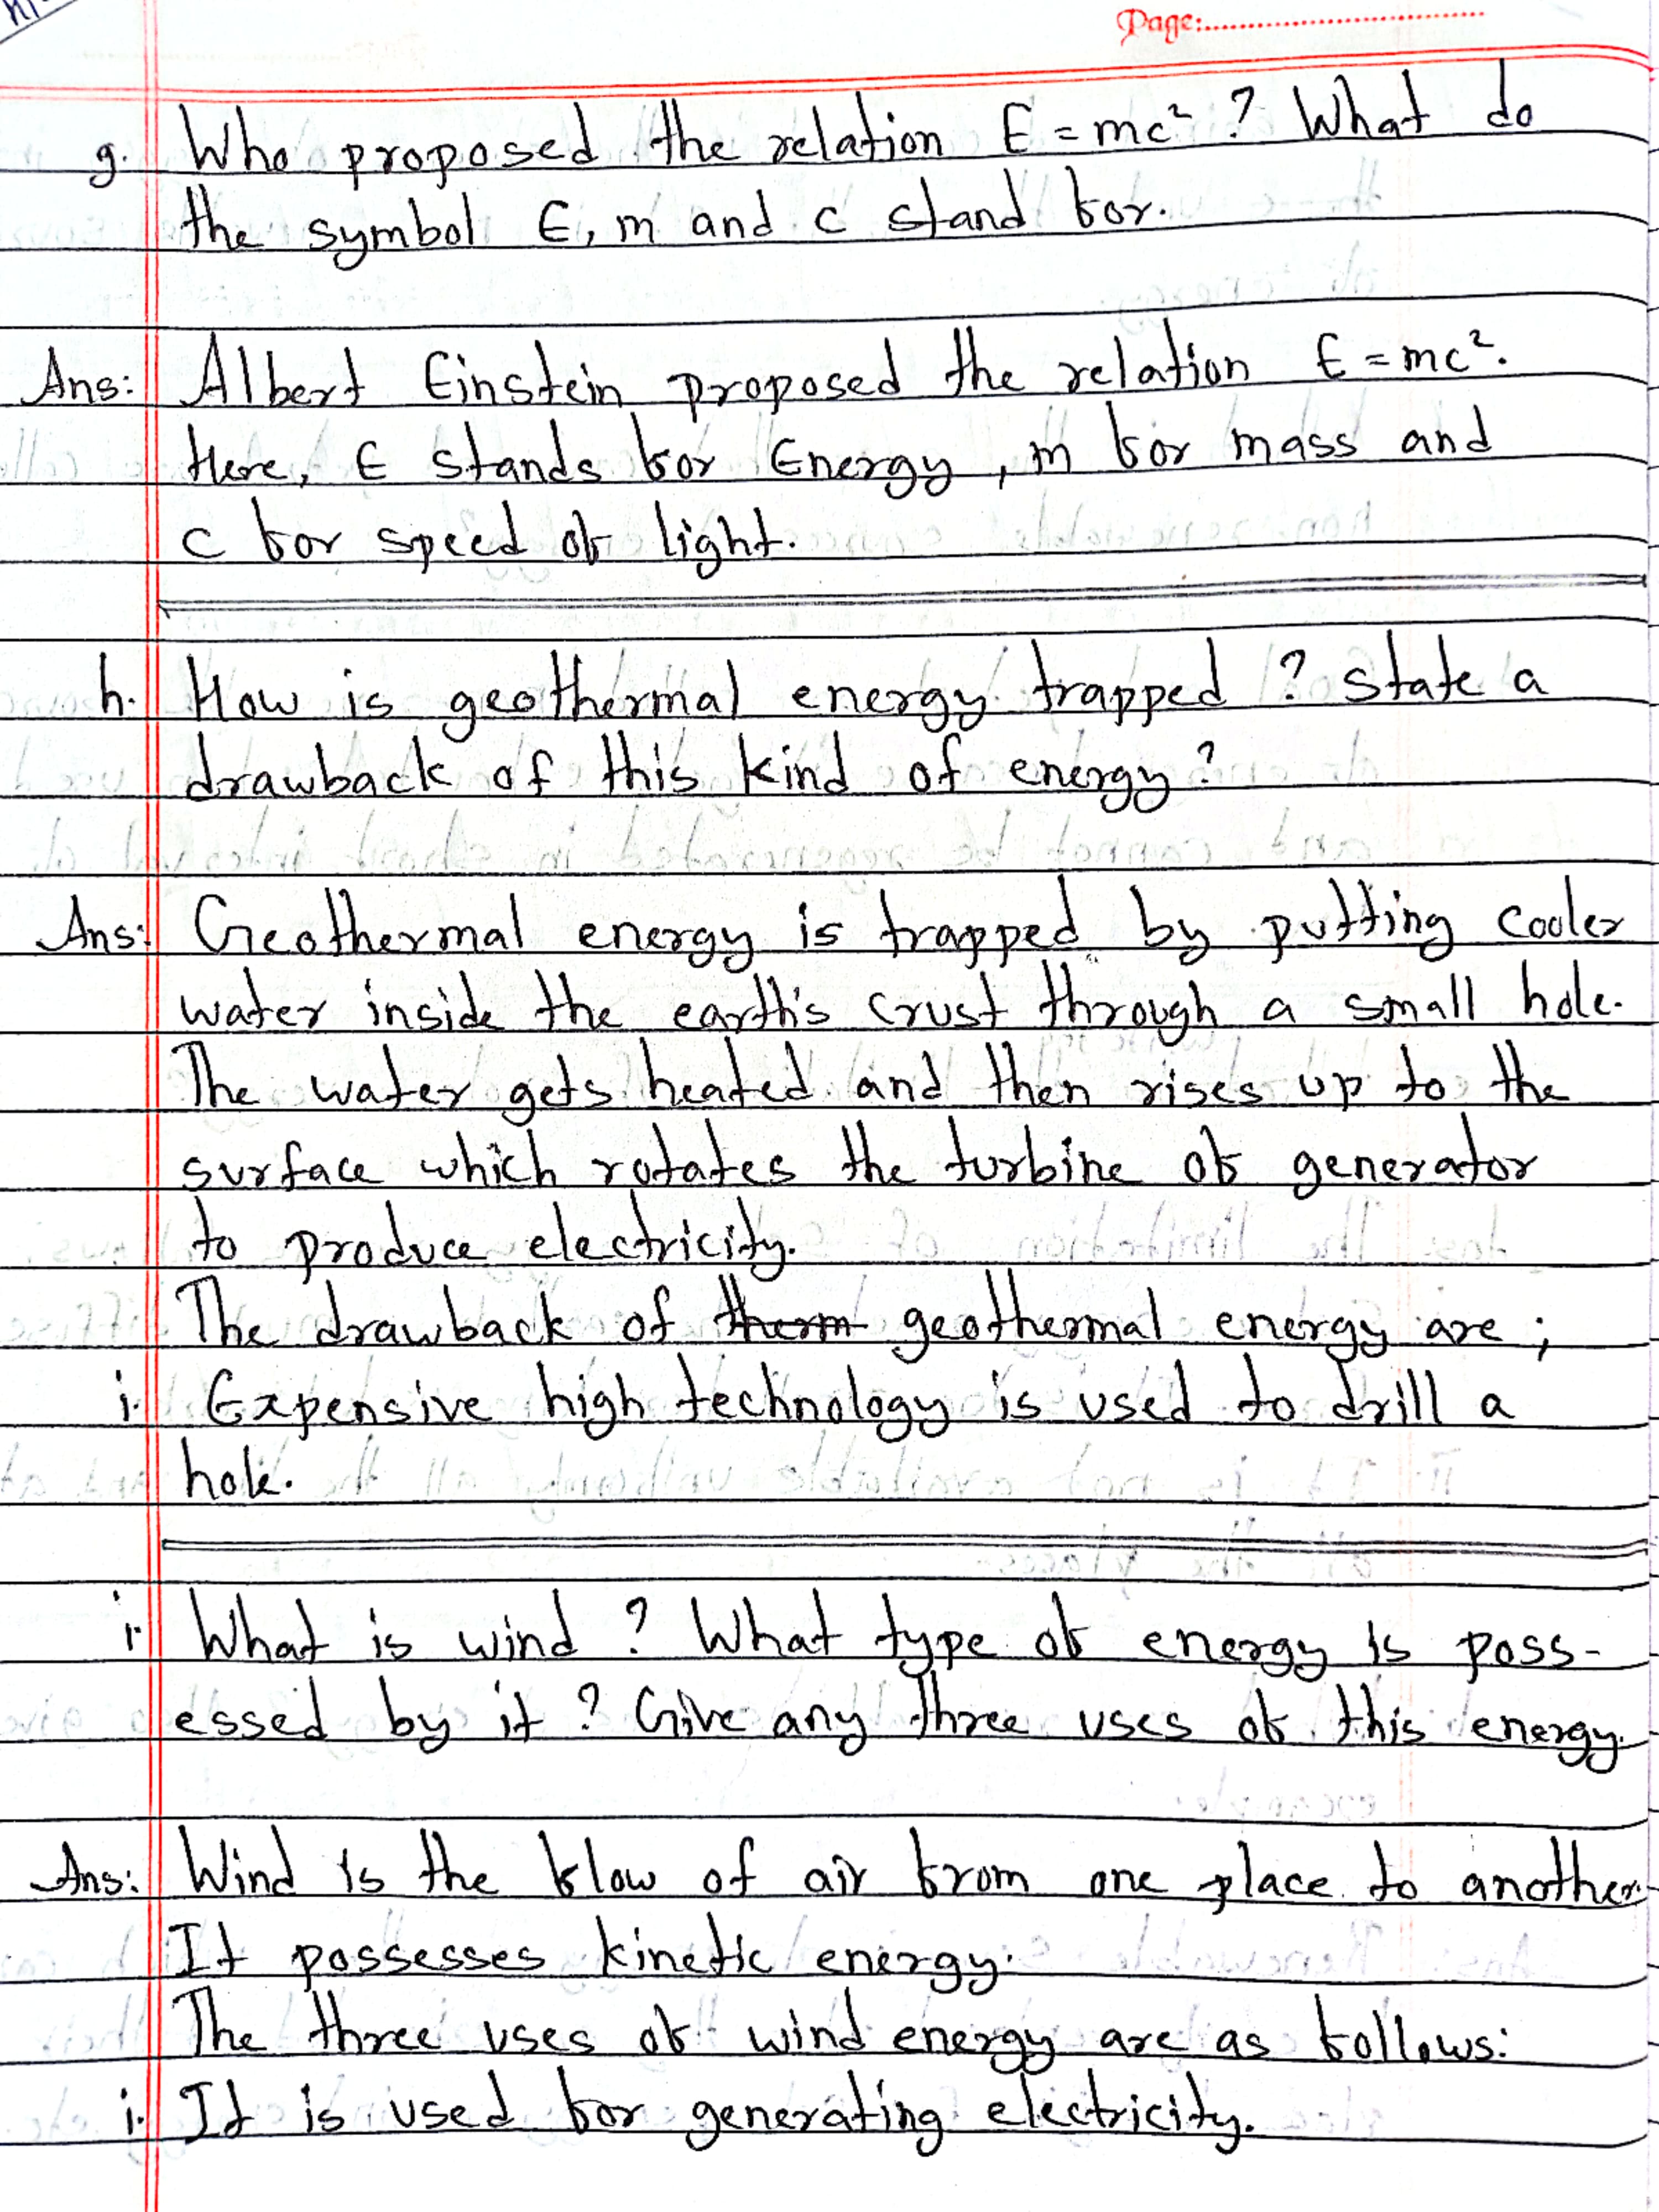 Page:
g. Who proposed the relation E = mc² ? What do
the symbol E, m and c stand for.
Ans: Albert Einstein proposed the relation E = mc².
Here, E stands for Energy, m for mass and
c for speed of light.
h. How is geothermal energy trapped ? state a
drawback of this kind of energy?
Ans: Geothermal energy is trapped by putting cooler
water inside the earth's crust through a small hole.
The water gets heated and then rises up to the
surface which rotates the turbine of generator
to produce electricity.
The drawback of therm geothermal energy are ;
i. Expensive high technology is used to drill a
hole.
i. What is wind ? What type of energy is poss-
essed by it ? Give any three uses of this energy.
Ans: Wind is the flow of air from one place to another.
It possesses kinetic energy.
The three uses of wind energy are as follows:
i. It is used for generating electricity.